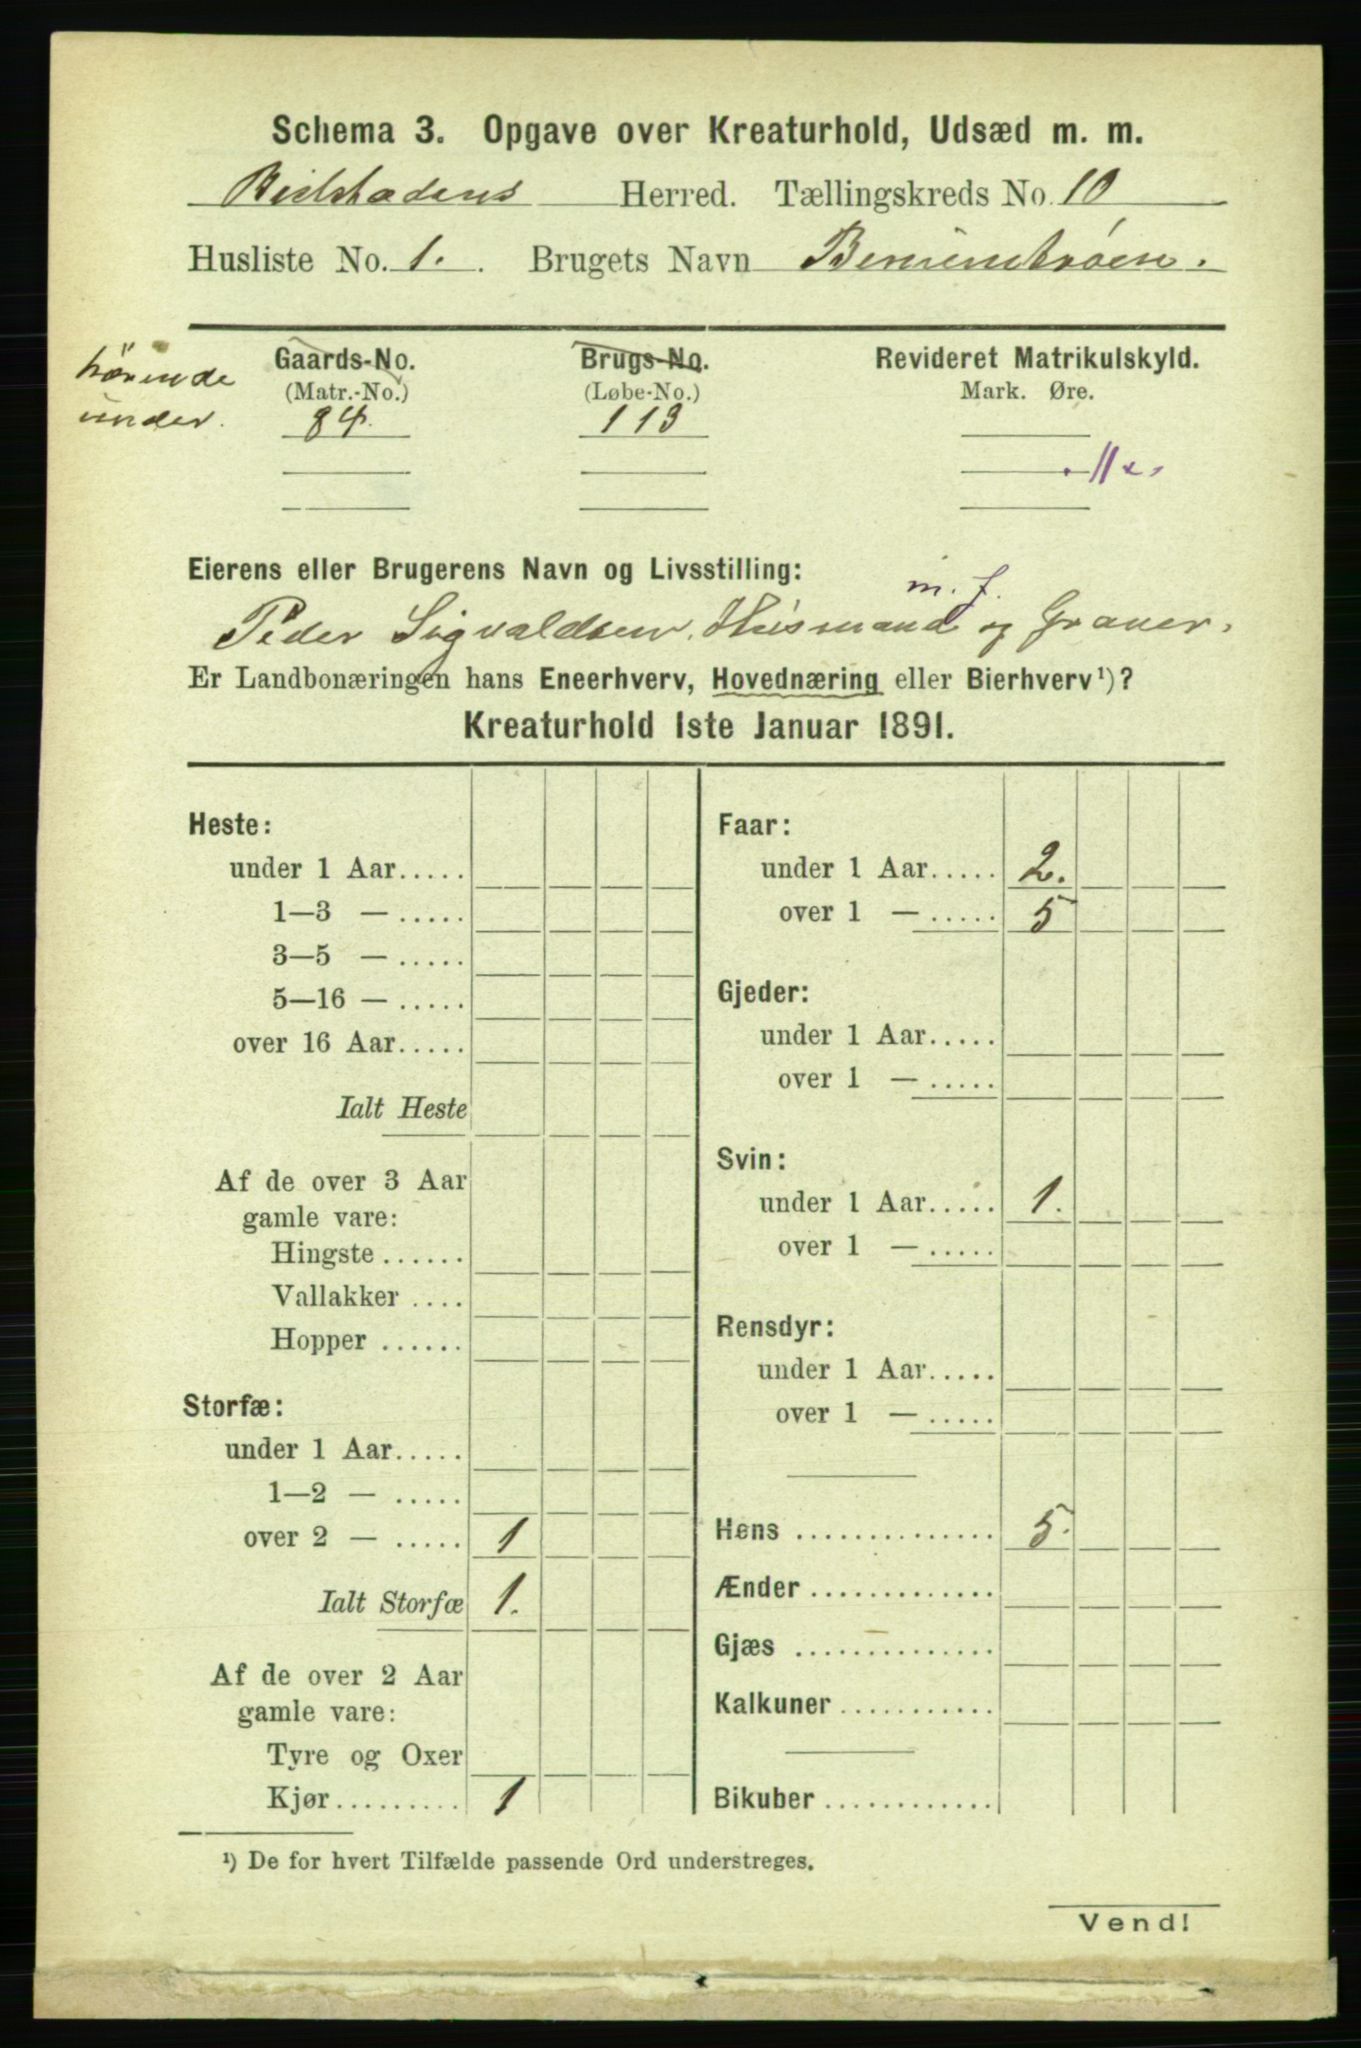 Schema 3. Opgave over Kreaturhold, Udsæd m. m.
Beitstadens Herred. Tællingskreds No. 10
Husliste No. 1. Brugets Navn
hörende under.
Gaards-No. Brugs-No. Revideret Matrikulskyld.
(Matr.-No.) (Løbe-No.) Mark. Øre.
84. 113
Eierens eller Brugerens Navn og Livsstilling:
m. J.
Peder Sigvaldsen, Husmand og Graver.
Er Landbonæringen hans Eneerhverv, Hovednæring eller Bierhverv¹)?
Kreaturhold 1ste Januar 1891.
Heste:
under 1 Aar.....
1—3 — .....
3—5 — .....
5—16 — .....
over 16 Aar.....
Ialt Heste
Af de over 3 Aar
gamle vare:
Hingste ......
Vallakker ....
Hopper ......
Storfæ:
under 1 Aar.....
1—2 — .....
over 2 — ..... 1
Ialt Storfæ 1.
Af de over 2 Aar
gamle vare:
Tyre og Oxer
Kjør......... 1
Faar:
under 1 Aar..... 2.
over 1 — ..... 5
Gjeder:
under 1 Aar.....
over 1 — .....
Svin:
under 1 Aar..... 1.
over 1 — .....
Rensdyr:
under 1 Aar.....
over 1 — .....
Høns .............. 5.
Ænder .............
Gjæs ..............
Kalkuner ...........
Bikuber .............
¹) De for hvert Tilfælde passende Ord understreges.
Vend!